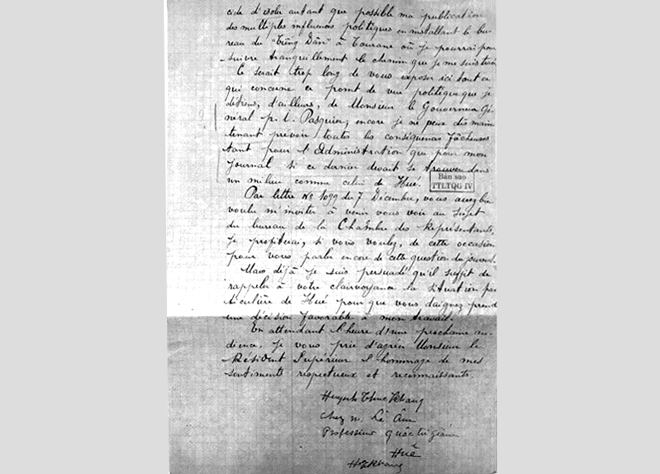 cidé d'isoler autant que possible ma publication
des multiples influences politiques en installant le bu-
reau du "Tiếng Dân" à Tourane où je pourrai pour
suivre tranquillement le chemin que je me suis
Ce serait trop long de vous exposer ici tout ce
qui concerne ce point de vue politique que je
d'ailleurs, de Monsieur le Gouverneur Gé-
néral p.i. Pasquier, encore je ne peux dès main
tenant prévoir toutes les conséquences fâcheuses
tant pour l'Administration que pour mon
journal si ce dernier devait se trouver dans
un milieu comme celui de Hué.
Bản sao
TTLTQG IV
Par lettre No 1099 du 7 Décembre, vous avez bien
voulu m'inviter à venir vous voir au sujet
du bureau de la Chambre des Représentants.
Je profiterai, si vous voulez, de cette occasion
pour vous parler encore de cette question du journal.
Mais déjà je suis persuadé qu'il suffit de
rappeler à votre clairvoyance la situation par
ticulière de Hué pour que vous daignez prendre
une décision favorable à mon
En attendant l'heure d'une prochaine au-
dience, je vous prie d'agréer Monsieur le
Résident Supérieur l'hommage de mes
sentiments respectueux et reconnaissants.
Huynh Thuc Khang
Chez M. Lê Âm
Professeur Quốc tử giám
Huế
HTKhang